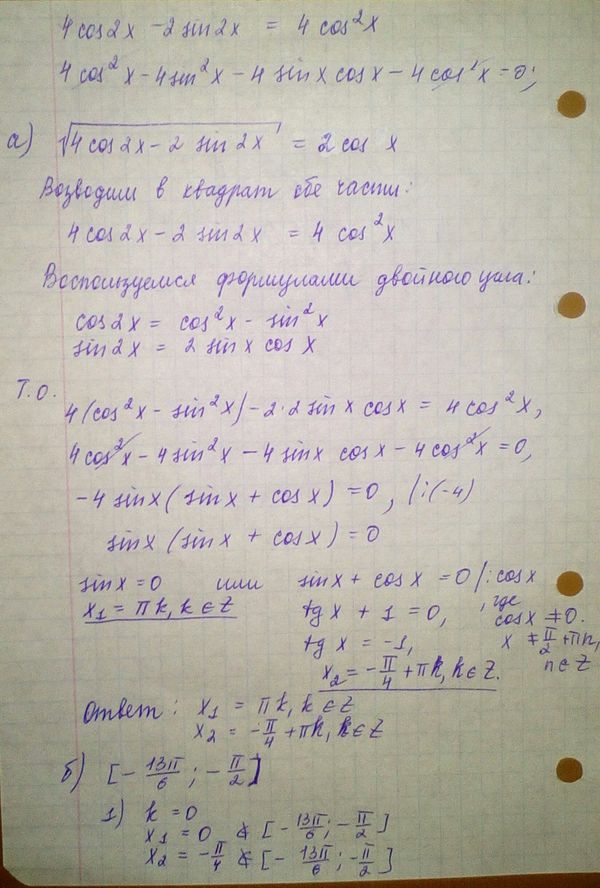 4 cos2x - 2 sin2x = 4 cos²x
4 cos²x - 4 sin²x - 4 sinx cosx - 4 cos²x = 0;
а) √(4 cos2x - 2 sin 2x) = 2 cos x
Возводим в квадрат обе части:
4 cos2x - 2 sin2x = 4 cos²x
Воспользуемся формулами двойного угла:
cos2x = cos²x - sin²x
sin2x = 2 sinx cosx
Т.о.
4(cos²x - sin²x) - 2·2 sinx cosx = 4cos²x,
4cos²x - 4sin²x - 4sinx cosx - 4cos²x = 0,
-4 sinx (sinx + cosx) = 0, |:(-4)
sinx (sinx + cosx) = 0
sinx = 0 или sinx + cosx = 0 |:cosx
x₁ = πk, k∈Z tgx + 1 = 0, где cosx ≠ 0.
tgx = -1, x ≠ π/2 + πn,
x₂ = -π/4 + πk, k∈Z. n∈Z
Ответ: x₁ = πk, k∈Z
x₂ = -π/4 + πk, k∈Z
б) [-13π/6; -π/2]
1) k = 0
x₁ = 0 ∉ [-13π/6; -π/2]
x₂ = -π/4 ∉ [-13π/6; -π/2]